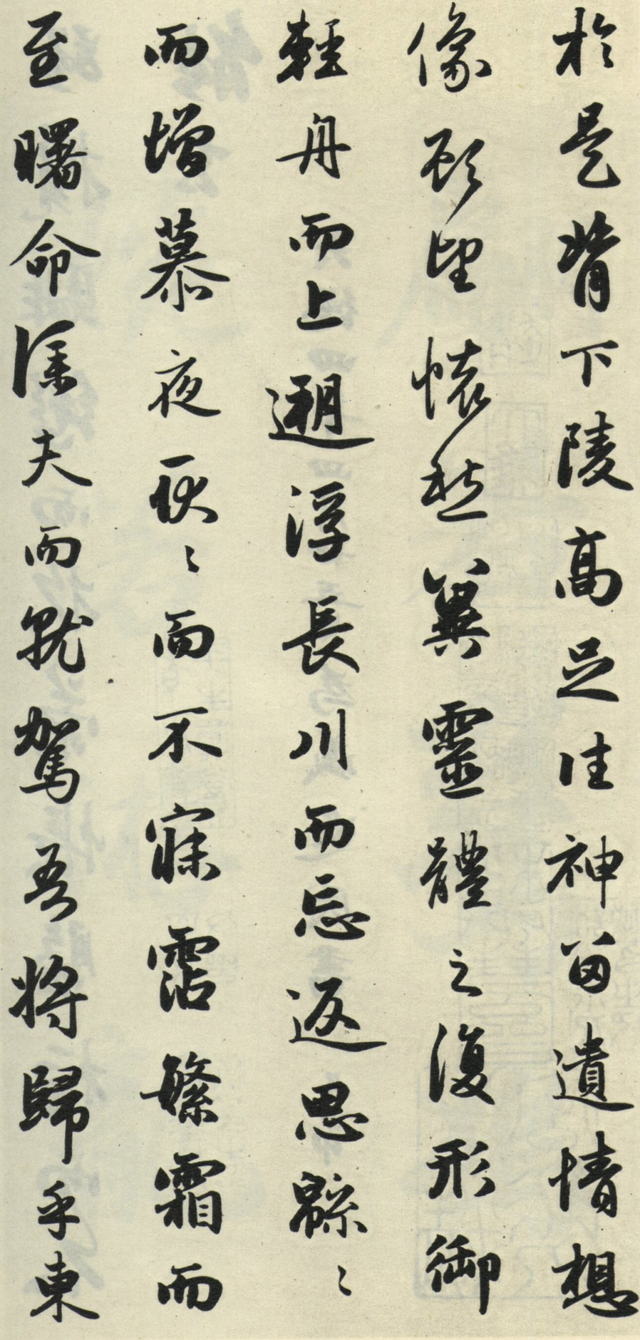 於是背下陵高足往神留遺情想
像顧望懷愁冀靈體之復形御
輕舟而上遡浮長川而忘返思緜〻
而增慕夜耿〻而不寐霑繁霜而
至曙命僕夫而就駕吾將歸乎東